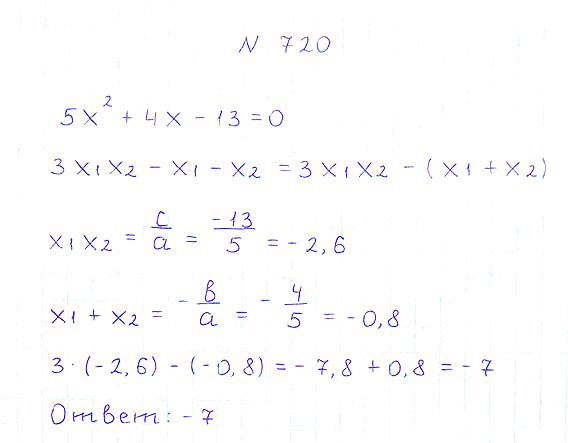 N 720
5x² + 4x - 13 = 0
3x₁x₂ - x₁ - x₂ = 3x₁x₂ - (x₁ + x₂)
x₁x₂ = c/a = -13/5 = -2,6
x₁ + x₂ = -в/a = -4/5 = -0,8
3·(-2,6) - (-0,8) = -7,8 + 0,8 = -7
Ответ: -7